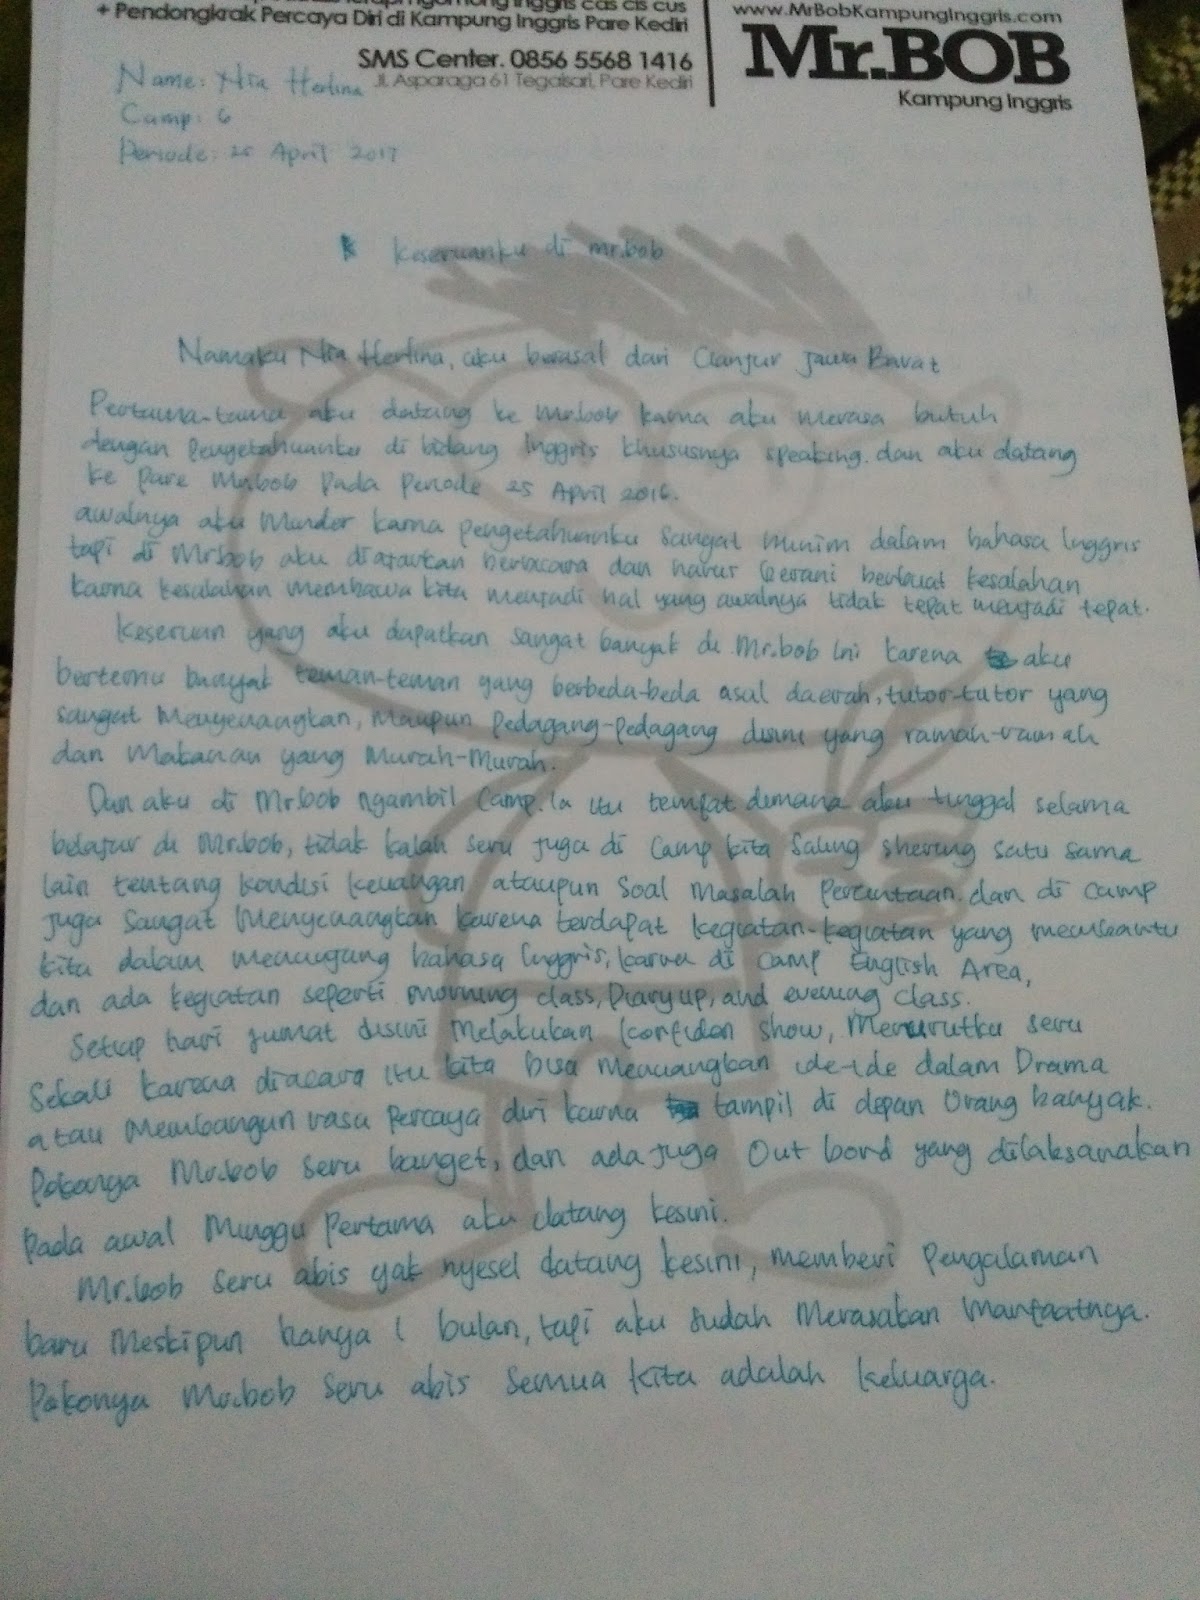 ngomong Inggris cas cis cus
+ Pendongkrak Percaya Diri di Kampung Inggris Pare Kediri
SMS Center. 0856 5568 1416
Jl. Asparaga 61 Tegalsari, Pare Kediri
www.MrBobKampungInggris.com
Mr.BOB
Kampung Inggris
Name: Nia Herlina
Camp: 6
Periode: 25 April 2017
Keseruanku di mr.bob
Namaku Nia Herlina, aku berasal dari Cianjur Jawa Barat
Pertama-tama aku datang ke Mr.bob karna aku merasa butuh
dengan Pengetahuanku di bidang Inggris khususnya speaking. dan aku datang
ke Pare Mr.bob Pada Periode 25 April 2016.
awalnya aku Minder karna pengetahuanku Sangat minim dalam bahasa Inggris
tapi di Mr.bob aku diajarkan berbicara dan harus berani berbuat kesalahan
karna kesalahan membawa kita menjadi hal yang awalnya tidak tepat menjadi tepat.
Keseruan yang aku dapatkan sangat banyak di Mr.bob Ini karena aku
bertemu banyak teman-teman yang berbeda-beda asal daerah, tutor-tutor yang
sangat Menyenangkan, Maupun Pedagang-Pedagang disini yang ramah-ramah
dan Makanan yang Murah-Murah.
Dan aku di Mr.bob ngambil Camp. Ia itu tempat dimana aku tinggal selama
belajar di Mr.bob, tidak kalah seru juga di Camp kita Saling shering satu sama
lain tentang kondisi keuangan ataupun Soal Masalah Percintaan. dan di camp
juga Sangat Menyenangkan karena terdapat kegiatan-kegiatan yang membantu
kita dalam menunjang bahasa Inggris, karna di Camp English Area,
dan ada kegiatan seperti morning class, Diary up, and evening class.
Setiap hari jumat disini Melakukan (confiden show, Menurutku seru
Sekali karena diacara itu kita bisa Menuangkan ide-ide dalam Drama
atau Membangun rasa Percaya diri karna tampil di depan Orang banyak.
Pokonya Mr.bob seru banget, dan ada juga Out bond yang dilaksanakan
Pada awal Minggu Pertama aku datang kesini.
Mr.bob seru abis gak nyesel datang kesini, memberi Pengalaman
baru Meskipun hanya 1 bulan, tapi aku sudah Merasakan Manfaatnya.
Pokonya Mr.bob Seru abis Semua Kita adalah Keluarga.